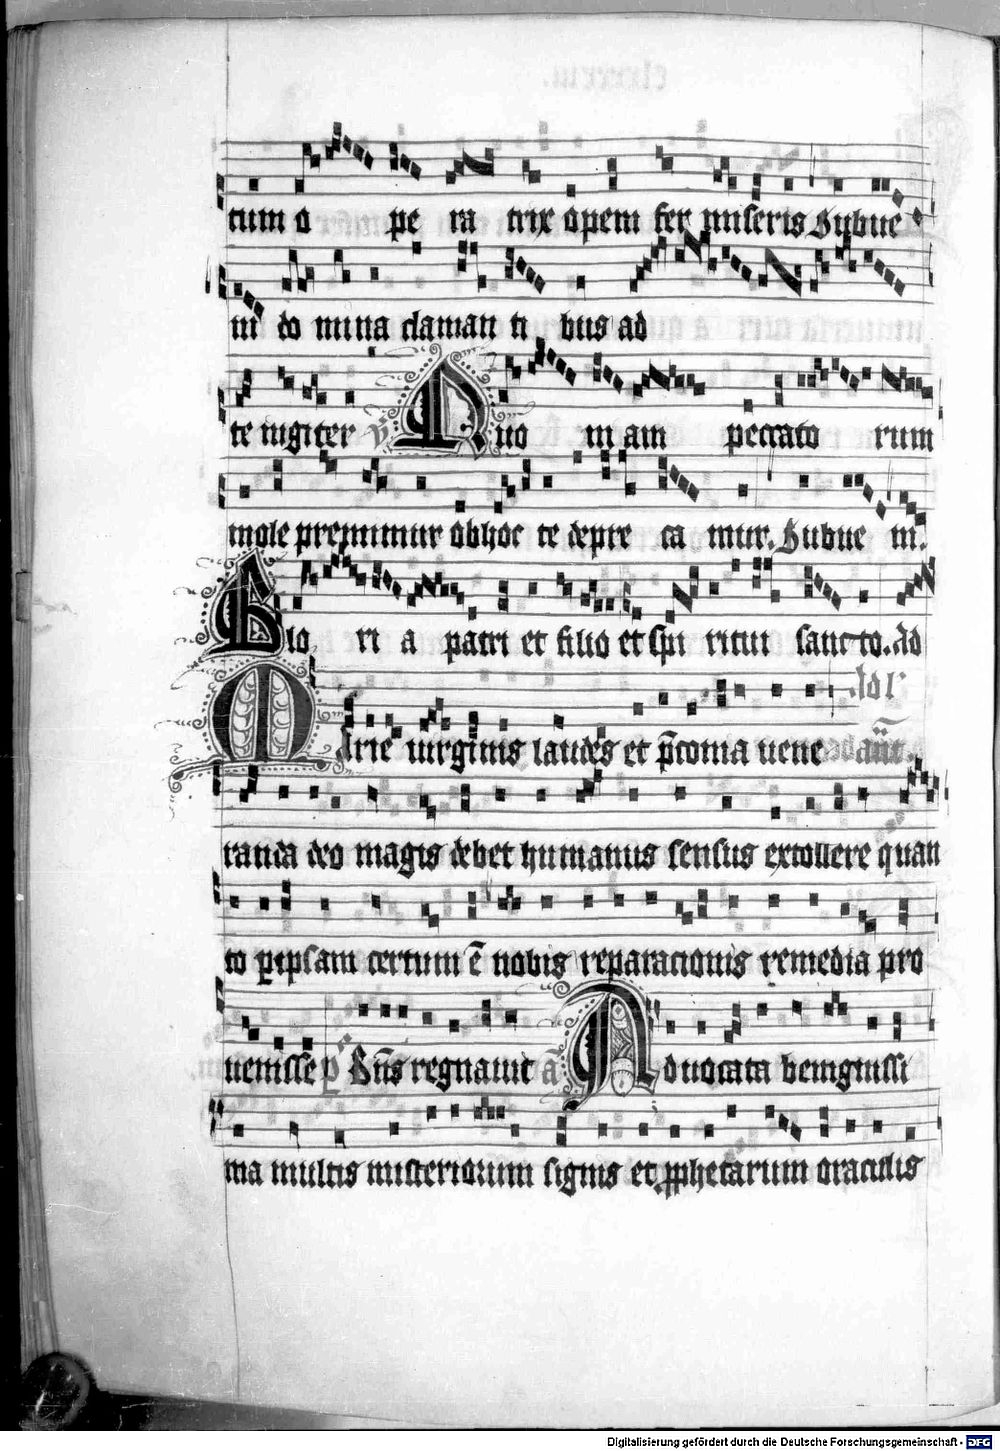 tum o pe ra trix opem fer miseris Subue
ni do mina claman ti bus ad
te iugiter ℣ Quo ni am peccato rum
mole premimur ob hoc te depre ca mur. Subue ni.
Glo ri a patri et filio et spi ritui sancto. Ad
Ad l'
Marie uirginis laudes et p̄conia uene an̄t.
randa deo magis debet humanus sensus extollere quan
to ꝑ ipsam certum ē nobis reparacionis remedia pro
uenisse p̄s Dn̄s regnauit a᷉ Aduocata benignissi
ma multis misteriorum signis et ꝓphetarum oraculis
Digitalisierung gefördert durch die Deutsche Forschungsgemeinschaft - DFG